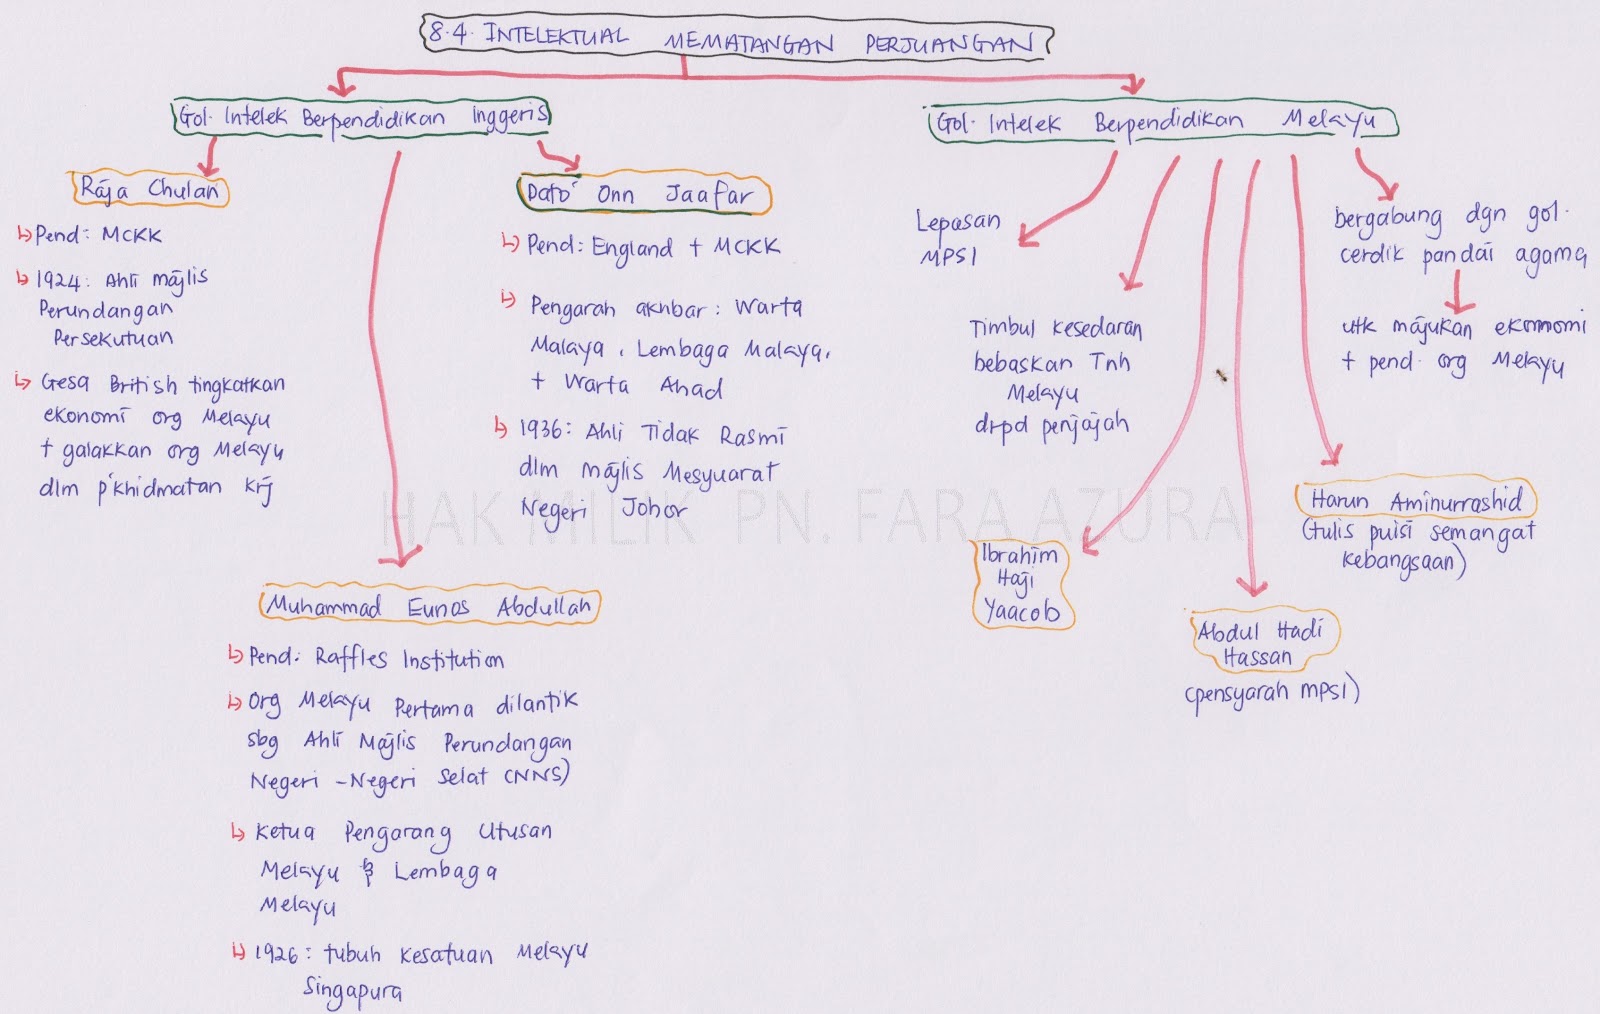 8.4. INTELEKTUAL MEMATANGAN PERJUANGAN
Gol. Intelek Berpendidikan Inggeris
Raja Chulan
Pend: MCKK
1924: Ahli majlis
Perundangan
Persekutuan
Gesa British tingkatkan
ekonomi org Melayu
+ galakkan org Melayu
dlm p'khidmatan krj
Dato' Onn Jaafar
Pend: England + MCKK
Pengarah akhbar: Warta
Malaya, Lembaga Malaya,
+ Warta Ahad
1936: Ahli Tidak Rasmi
dlm majlis Mesyuarat
Negeri Johor
Muhammad Eunos Abdullah
Pend: Raffles Institution
Org Melayu Pertama dilantik
sbg Ahli Majlis Perundangan
Negeri-Negeri Selat (NNS)
Ketua Pengarang Utusan
Melayu & Lembaga
Melayu
1926: tubuh Kesatuan Melayu
Singapura
Gol. Intelek Berpendidikan Melayu
Lepasan
MPSI
Timbul kesedaran
bebaskan Tnh
Melayu
drpd penjajah
Ibrahim
Haji
Yaacob
Abdul Hadi
Hassan
(pensyarah MPSI)
Harun Aminurrashid
(tulis puisi semangat
kebangsaan)
bergabung dgn gol.
cerdik pandai agama
utk majukan ekonomi
+ pend. org Melayu
HAK MILIK PN. FARA AZURA